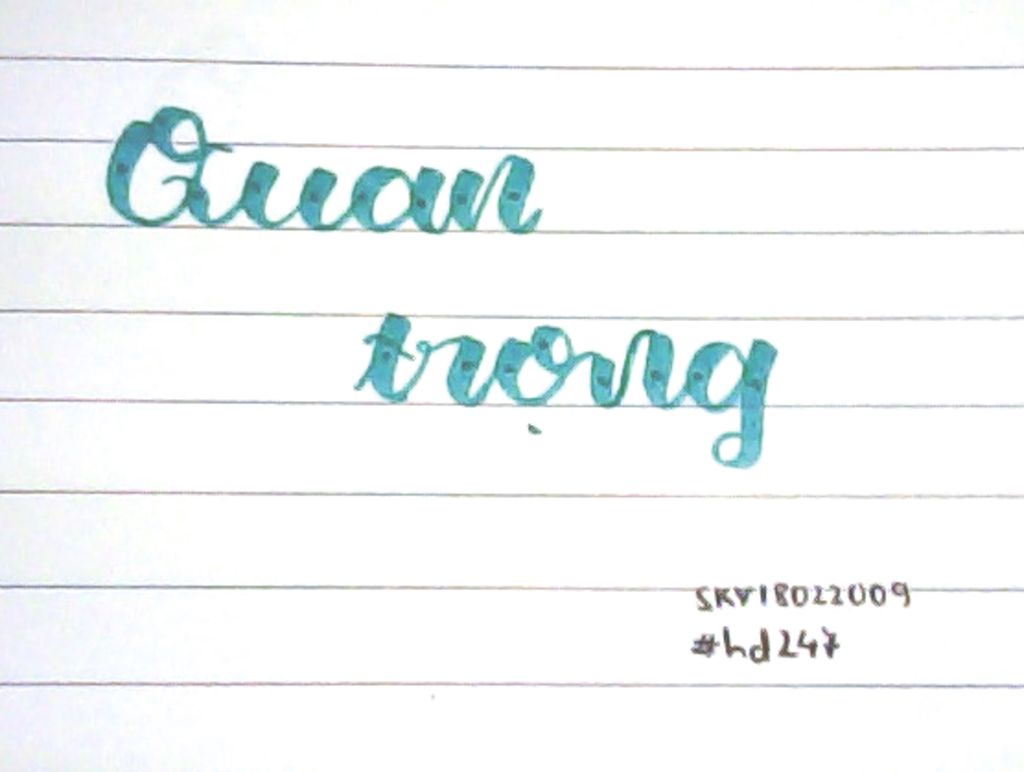 Quan
trọng
SKV18022009
#hd247